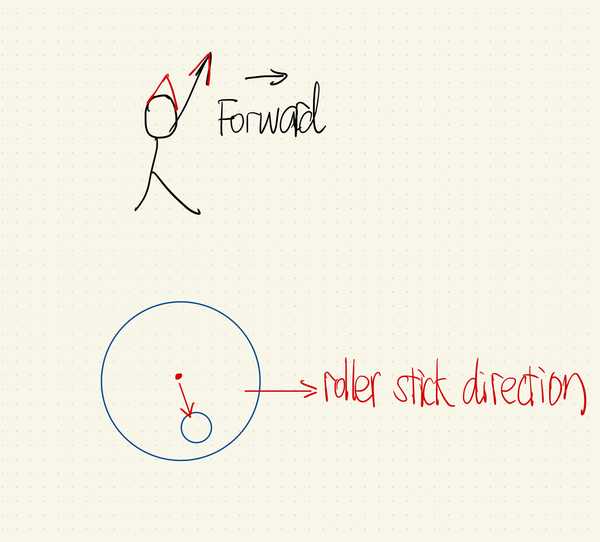 Forward
roller stick direction